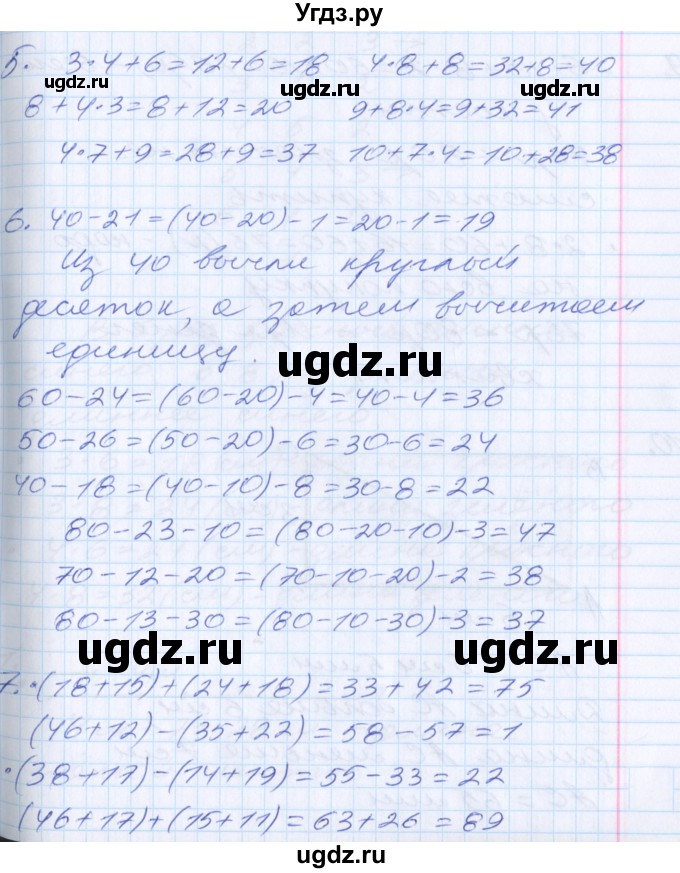 Угдз.ру
5. 3·4+6=12+6=18 4·8+8=32+8=40
8+4·3=8+12=20 9+8·4=9+32=41
4·7+9=28+9=37 10+7·4=10+28=38
6. 40-21=(40-20)-1=20-1=19
Из 40 вычли круглый
десяток, а затем вычитаем
единицу.
ugdz.ru
60-24=(60-20)-4=40-4=36
50-26=(50-20)-6=30-6=24
40-18=(40-10)-8=30-8=22
80-23-10=(80-20-10)-3=47
70-12-20=(70-10-20)-2=38
80-13-30=(80-10-30)-3=37
ugdz.ru ugdz.ru
7.·(18+15)+(24+18)=33+42=75
(46+12)-(35+22)=58-57=1
·(38+17)-(14+19)=55-33=22
(46+17)+(15+11)=63+26=89
ugdz.ru